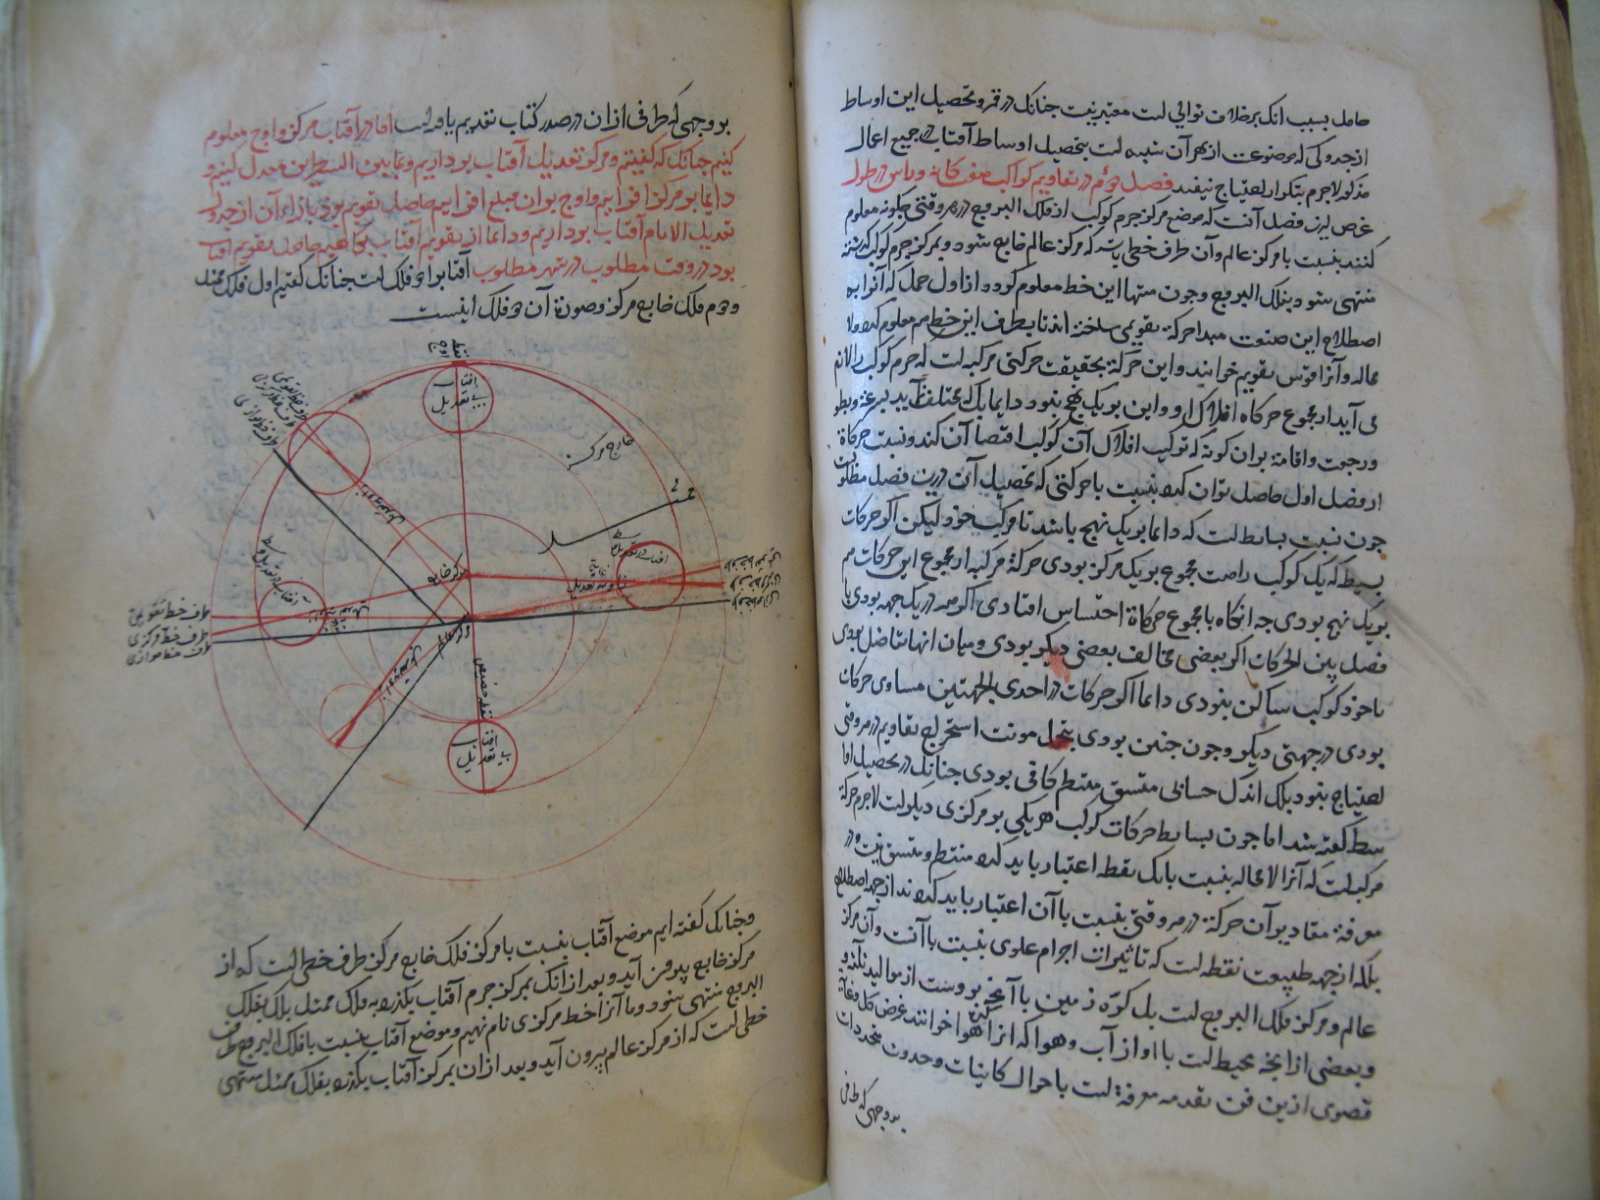 حامل بسبب انک برخلاف توالی است معتبر نیست چنانک در قمر و تحصیل این اوساط
از جدولی که موضوعست از بهر آن شبیه است بتحصیل اوساط آفتاب در جمیع اعمال
مذکوره لاجرم بتکرار احتیاج نیفتد فصل دوم در تقاویم کواکب در طول
غرض ازین فصل آنست که موضع مرکز جرم کوکب از فلک البروج در هر وقتی چگونه معلوم
کنند بنسبت با مرکز عالم و آن طرف خطی باشد که از مرکز عالم خارج شود و بمرکز جرم کوکب گذشته
منتهی شود بفلک البروج و چون منتهای این خط معلوم گردد از اول حمل که آنرا به
اصطلاح این صنعت مبدا حرکة تقویمی ساخته اند تا بطرف این خط هم معلوم گردد لا
محاله و آنرا قوس تقویم خوانند و این حرکة بحقیقت حرکتی مرکبه است که جرم کوکب را لازم
می آید از مجموع حرکات افلاک او و این بر یک نهج نبود دایما بلک مختلف آید بسرعة و بطو
و رجعت و اقامة بران گونه که ترکیب افلاک آن کوکب اقتضا آن کند و نسبت حرکاة
از فصل اول حاصل توان کرد بنسبت با حرکتی که تحصیل آن درین فصل مطلوبست
چون نسبت بسایط است که دایما بر یک نهج باشد تا مرکب خود ولیکن اگر حرکات
بسیط که یک کوکب راست مجموع بر یک مرکز بودی حرکة مرکبه از مجموع این حرکات هم
بر یک نهج بودی چه انگاه با مجموع حرکاة احتساس افتادی اگر همه در یک جهه بودی یا
فضل بین الحرکات اگر بعضی مخالف بعضی دیگر بودی و میان انها تفاضل بودی
یا خود کوکب ساکن بنودی دایما اگر حرکات در احدی الجهتین مساوی حرکات
بودی در جهتی دیگر و چون چنین بودی بتحمل مونت استخراج تقاویم در هر وقتی
احتیاج نبود بلک اندک حسابی متسق منتظم کافی بودی چنانک در تحصیل اوساط
بسط گفته شد اما چون بسایط حرکات کوکب هر یکی بر مرکزی دیگرست لاجرم حرکة
مرکبه است که آنرا لا محاله بنسبت با یک نقطه اعتبار باید کرد منتظم و متسق نیست و در
معرفة مقادیر آن حرکة در هر وقتی بنسبت با آن اعتبار باید کرد نه از جهه اصطلاح
بلکه از جهه طبیعت نقطه است که تاثیرات اجرام علوی بنسبت با آنست و آن مرکز
عالم و مرکز فلک البروج است بل کره زمین با آنچه بروست از موالید ثلثه و
و بعضی از ابخه محیط است با او از آب و هوا که انرا هوا خوانند غرض کل و غایة
قصوی ازین فن تقدمه معرفة است باحوال کاینات و حدوث متجددات
بر وجهی که طرفی
بر وجهی که طرفی از ان در صدر کتاب تقدیم یافته است اما در آفتاب مرکز و اوج معلوم
کنیم چنانک که گفتیم و مرکز تعدیل آفتاب برداریم و بمابین السطرین معدل کنیم و
دایما بر مرکز افزاییم و اوج بران مبلغ افزاییم حاصل تقویم بود بازاء آن از جدول
تعدیل الایام آفتاب برداریم و دایما از تقویم آفتاب بکاهیم حاصل تقویم آفتاب
بود در وقت مطلوب در شهر مطلوب آفتاب را دو فلک است چنانک گفتیم اول فلک ممثل
دوم فلک خارج مرکز و صورة آن دو فلک اینست
نقطه اوج
آفتاب بی تعدیل
خارج مرکز
ممثل
طرف خط تقویمی
طرف خط مرکزی
طرف خط موازی
زاویه تعدیل
مرکز خارج
مرکز عالم
زاویه تعدیل
زاویه تعدیل
طرف خط تقویمی
طرف خط مرکزی
طرف خط موازی
طرف خط تقویمی
طرف خط مرکزی
طرف خط موازی
زاویه تعدیل
نقطه حضیض
آفتاب بی تعدیل
و چنانک گفته ایم موضع آفتاب بنسبت با مرکز فلک خارج مرکز طرف خطی است که از
مرکز خارج بیرون آید و بعد از انک بمرکز جرم آفتاب بگذرد به فلک ممثل بلک بفلک
البروج منتهی شود و ما آنرا خط مرکزی نام نهیم و موضع آفتاب بنسبت با فلک البروج طرف
خطی است که از مرکز عالم بیرون آید و بعد از ان بمرکز آفتاب بگذرد بفلک ممثل منتهی